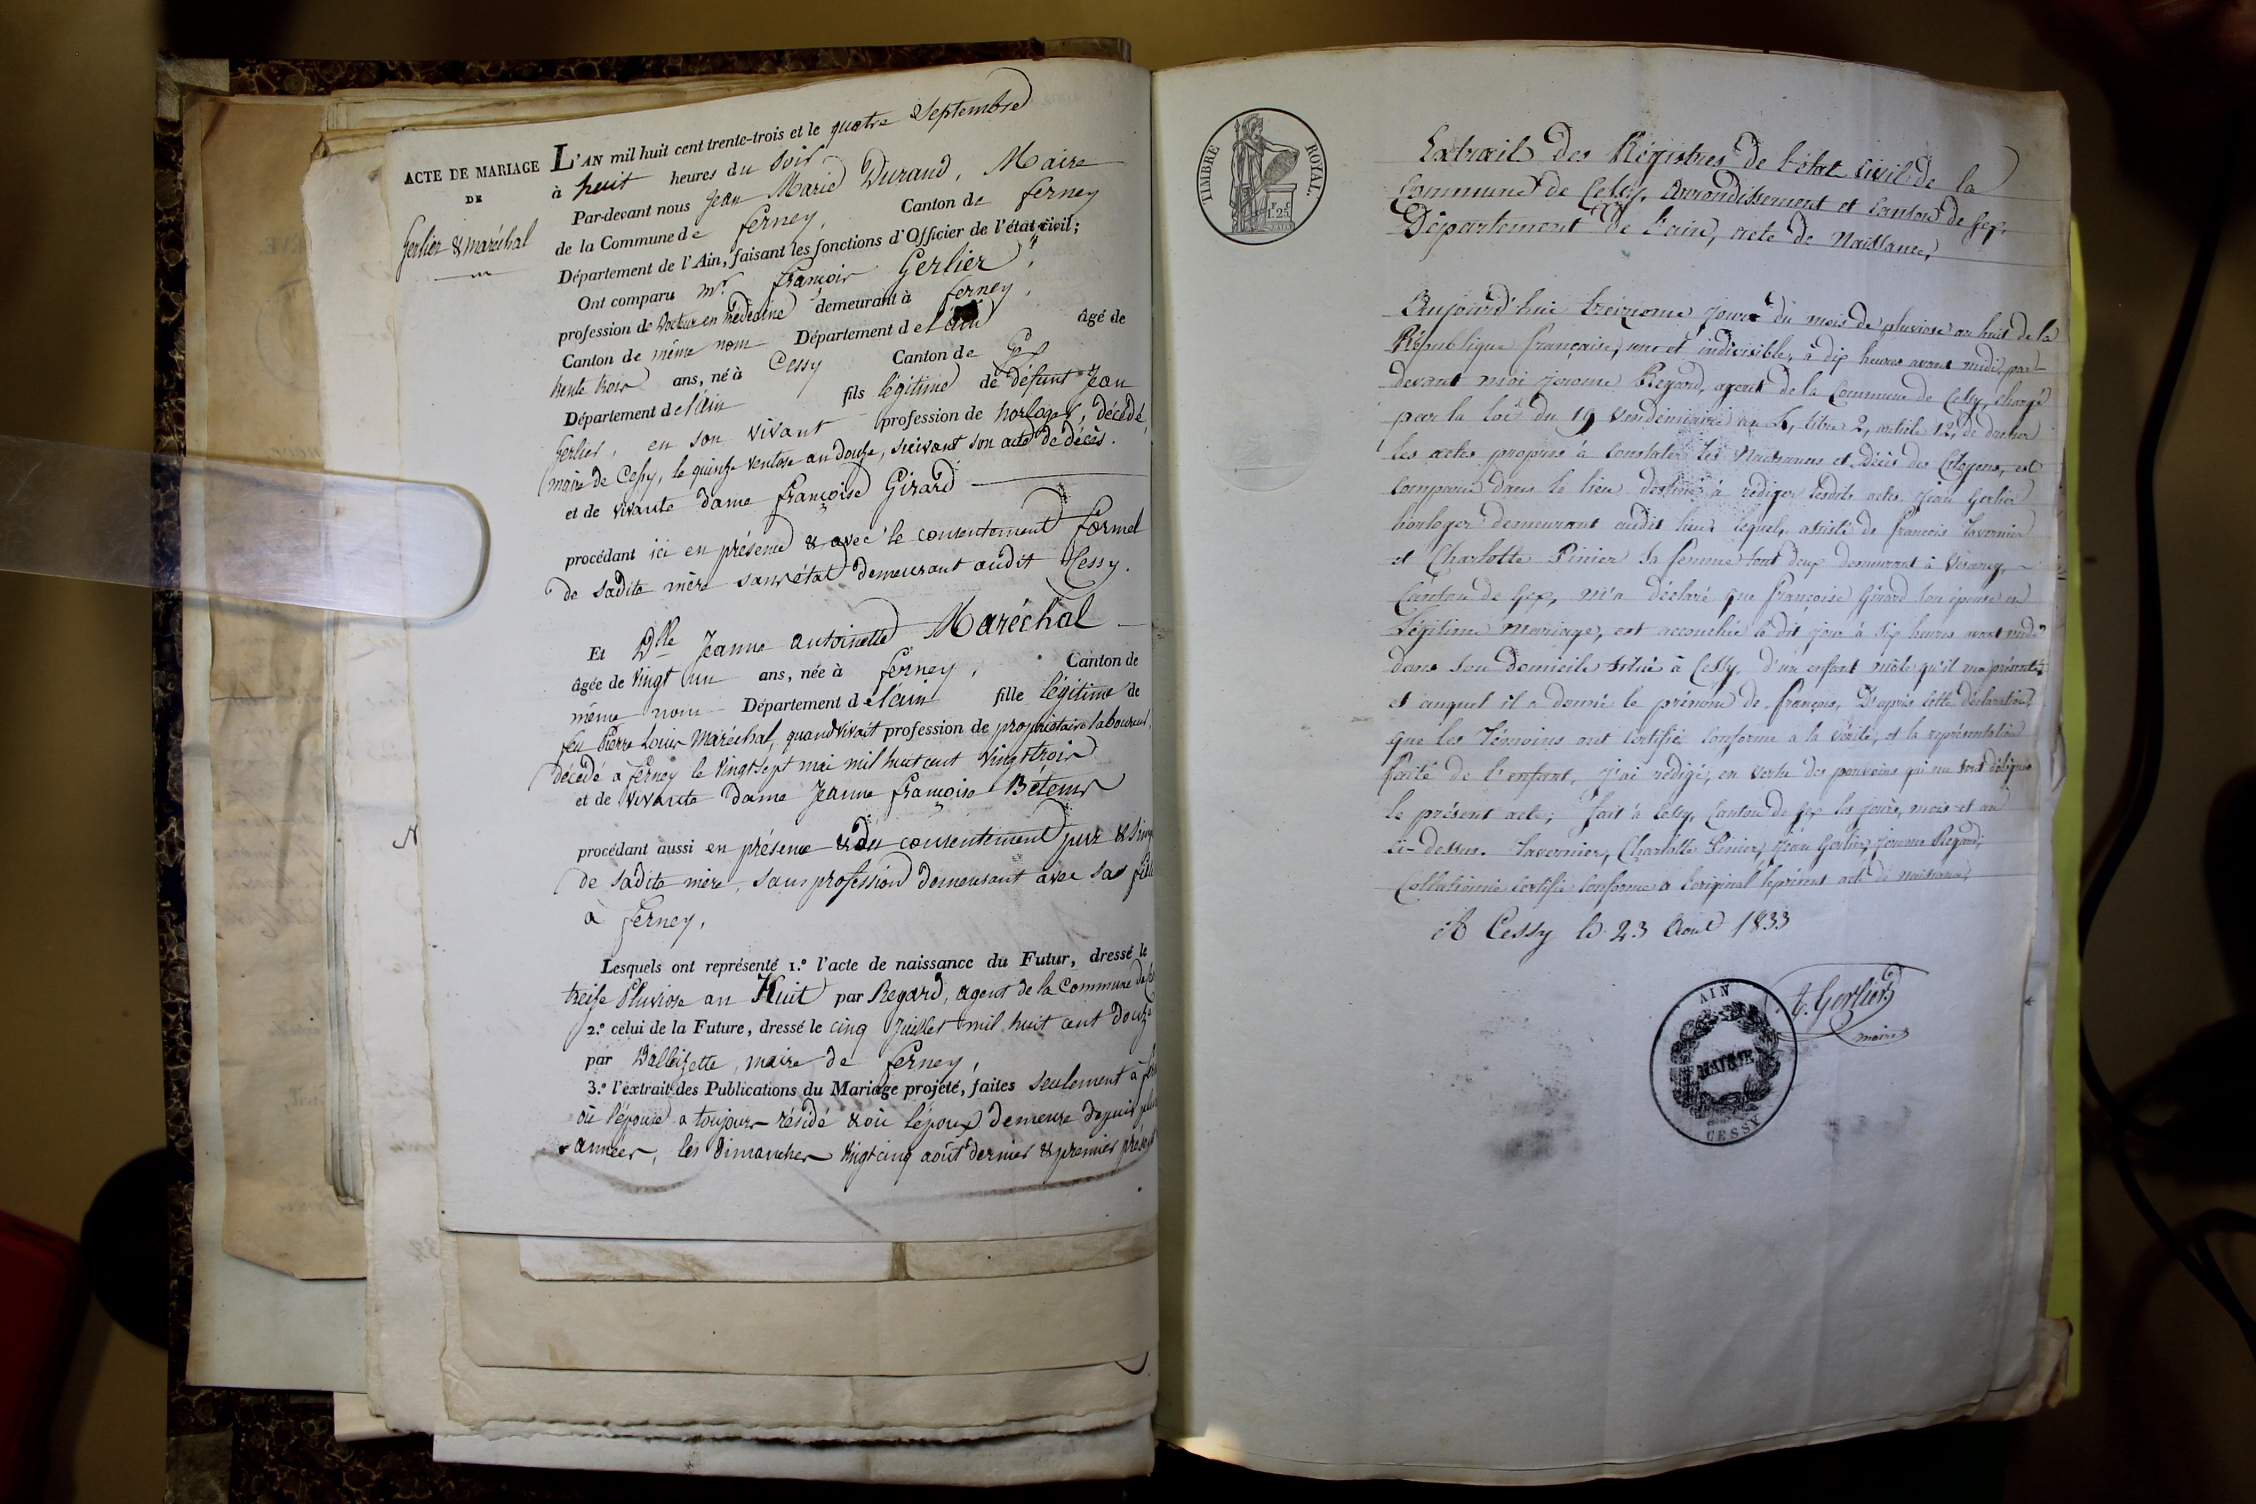 ACTE DE MARIAGE
DE
Gerlier & maréchal
L'AN mil huit cent trente-trois et le quatre Septembre
à huit heures du soir
Par-devant nous Jean Marie Durand, Maire
de la Commune de ferney, Canton de ferney
Département de l'Ain, faisant les fonctions d'Officier de l'état civil;
Ont comparu mr. françois Gerlier,
profession de Docteur en médecine demeurant à ferney,
Canton de même nom Département de l'ain âgé de
trente trois ans, né à Cessy Canton de Gex
Département de l'Ain fils légitime de défunt Jean
Gerlier, en son vivant profession de horloger, décédé,
maire de Cessy, le quinze ventose an douze, suivant son acte de décès.
et de vivante dame françoise Girard
procédant ici en présence & avec le consentement formel
de sadite mère sans état demeurant audit Cessy.
Et Dlle Jeanne antoinette Maréchal
âgée de vingt un ans, née à ferney, Canton de
même nom Département de l'ain fille légitime de
feu Pierre Louis Maréchal, quand vivait profession de propriétaire laboureur,
décédé à ferney le vingt sept mai mil huit cent vingt trois
et de vivante dame Jeanne françoise Bétems
procédant aussi en présence & du consentement pur &
de sadite mère, sans profession demeurant avec sa fille
à ferney.
Lesquels ont représenté 1.° l'acte de naissance du Futur, dressé le
treize Pluviose an Huit par Regard, agent de la Commune de
2.° celui de la Future, dressé le cinq Juillet mil huit cent douze
par Balleizette, maire de ferney,
3.° l'extrait des Publications du Mariage projeté, faites seulement à
où l'épouse a toujours résidé & où l'époux demeure depuis
années, les Dimanches vingt cinq août dernier & premier
TIMBRE ROYAL.
1F. 25C.
Extrait des Régistres de l'état civil de la
Commune de Cessy, Arrondissement et Canton de Gex,
Département de l'ain, acte de Naissance,
Aujourd'hui treizieme jour du mois de pluviose an huit de la
République française, une et indivisible, à dix heures avant midi, par-
devant moi jerome Regard, agent de la Commune de Cessy, chargé
par la loi du 19 vendémiaire an 4, titre 2, article 12, de dresser
les actes propres à Constater les Naissances et Décès des Citoyens, est
Comparu dans le lieu destiné à rédiger lesdits actes Jean Gerlier
horloger demeurant audit lieu, lequel, assisté de françois Tavernier
et Charlotte Pinier sa femme tout deux demeurant à
Canton de Gex, m'a déclaré que françoise Girard son epouse en
Légitime Mariage, est accouchée ledit jour à six heures avant midi
dans son domicile situé à Cessy, d'un enfant mâle qu'il m'a présenté
et auquel il a donné le prénom de françois, D'après cette déclaration
que les Témoins ont Certifié Conforme a la vérité, et la représentation
faite de l'enfant, j'ai rédigé, en vertu des pouvoirs qui me sont délégués
le présent acte; fait à Cessy, Canton de Gex les jours, mois et an
ci-dessus. Tavernier, Charlotte Pinier, Jean Gerlier, jerome Regard,
Collationné Certifié Conforme à l'original le présent acte de naissance,
A Cessy le 23 Aout 1833
Gerlier
maire
AIN
MAIRIE
CESSY